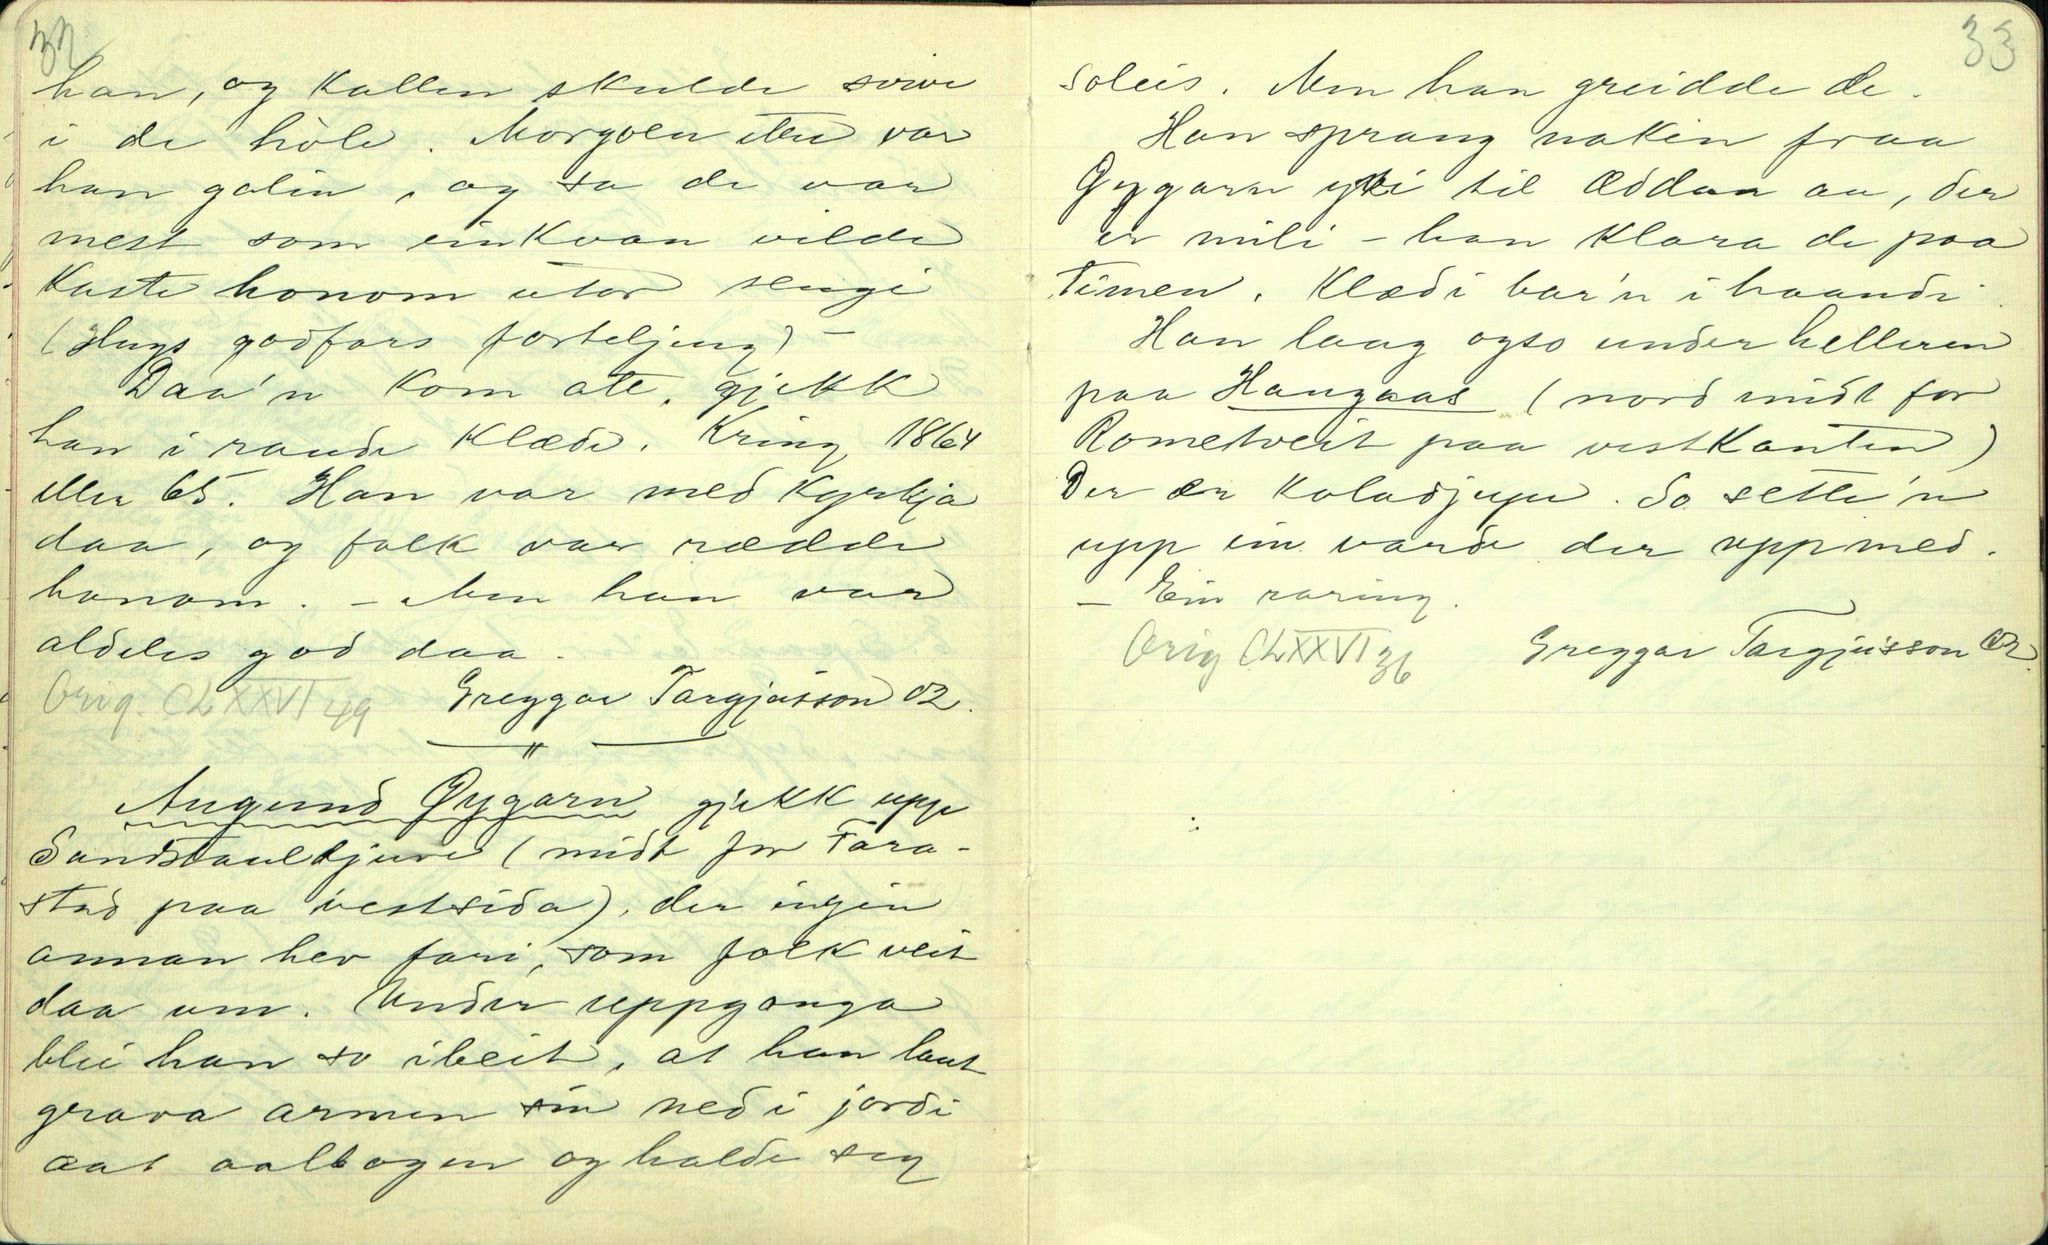 32
han, og kallen skulde söve
i de hole. Morgoen ette var
han galin, og sa de var
mest som einkvan vilde
kaste honom utor sengi
(Hugs godfars forteljing) –
Daa'n kom ate, gjekk
han i raude klæde. Kring 1864
eller 65. Han var med kyrkja
daa, og folk var rædde
honom. – Men han var
aldeles god daa.
Orig. CLXXVI 49 Greggar Targjusson 02.
"
Augund Gygarn gjekk upp
Sandstaultjuve (midt for Tara-
stad paa vestsida), der ingin
annan hev fari, som folk veit
daa um. Under uppganga
blei han so ibeit, at han laut
grava armen sin ned i jordi
aat aalbogen og halde seg
33
soleis. Men han greidde de.
Han sprang nakin fraa
Gygarn yti til Æddan aa, der
er mili – han klara de paa
timen. Klædi bar'n i haandi.
Han laag ogso under helleren
paa Haugaas (nord midt for
Rometveit paa vestkanten)
Der er koladjupe. So sette'n
upp ein varde der uppmed.
– Ein raring.
Orig CLXXVI 36 Greggar Targjusson 02.